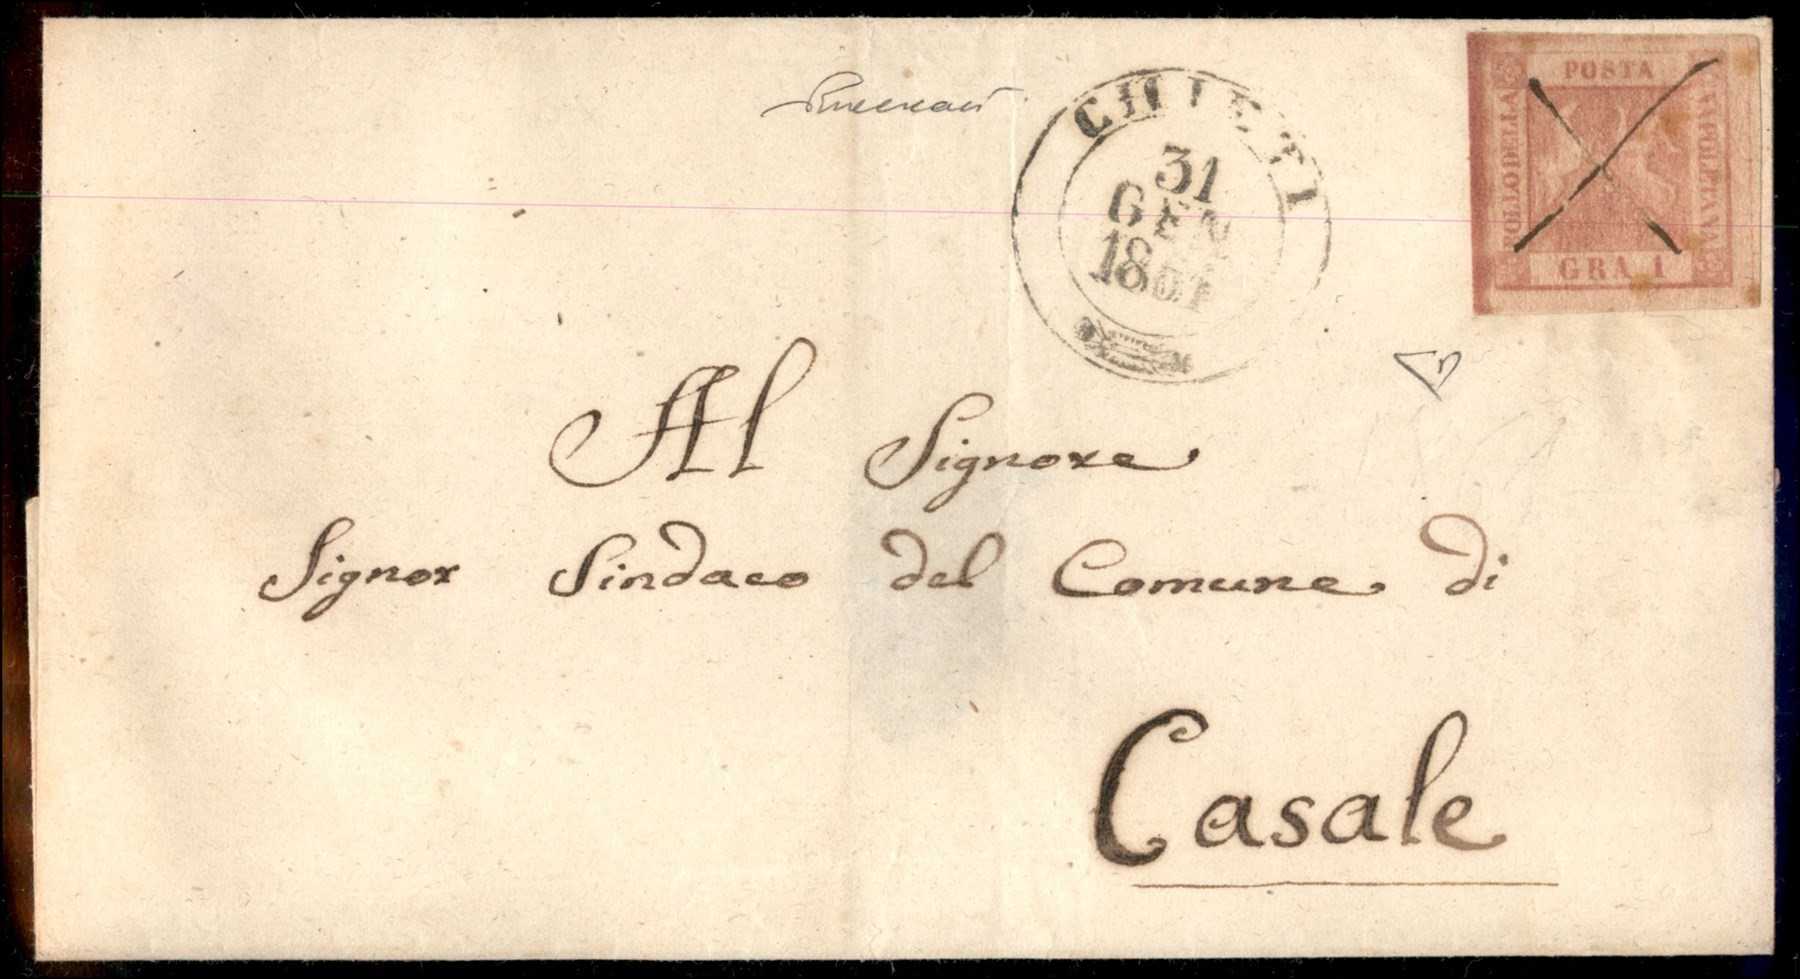 CHIETI
31
GEN
1861
POSTA
BOLLO DELLA
NAPOLETANA
GRA 1
Al Signore
Signor Sindaco del Comune di
Casale